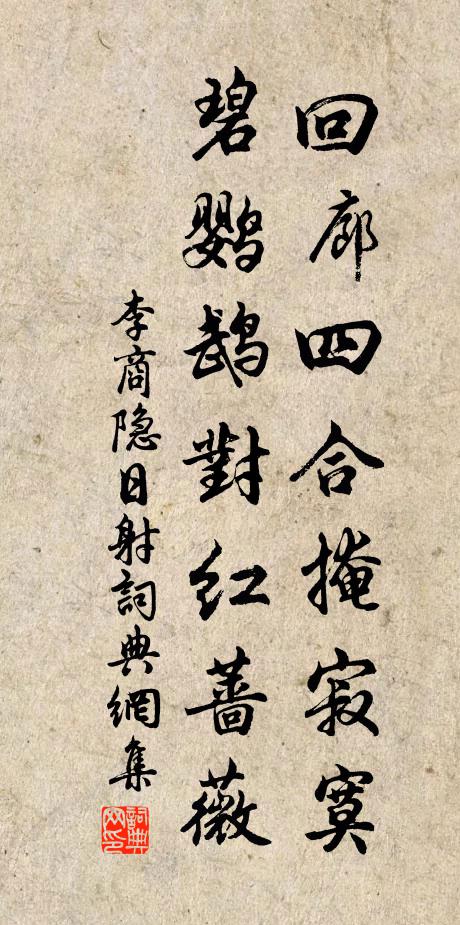 回廊四合掩寂寞
碧鹦鹉對红蔷薇
李商隐日射詞典網集
詞典网印